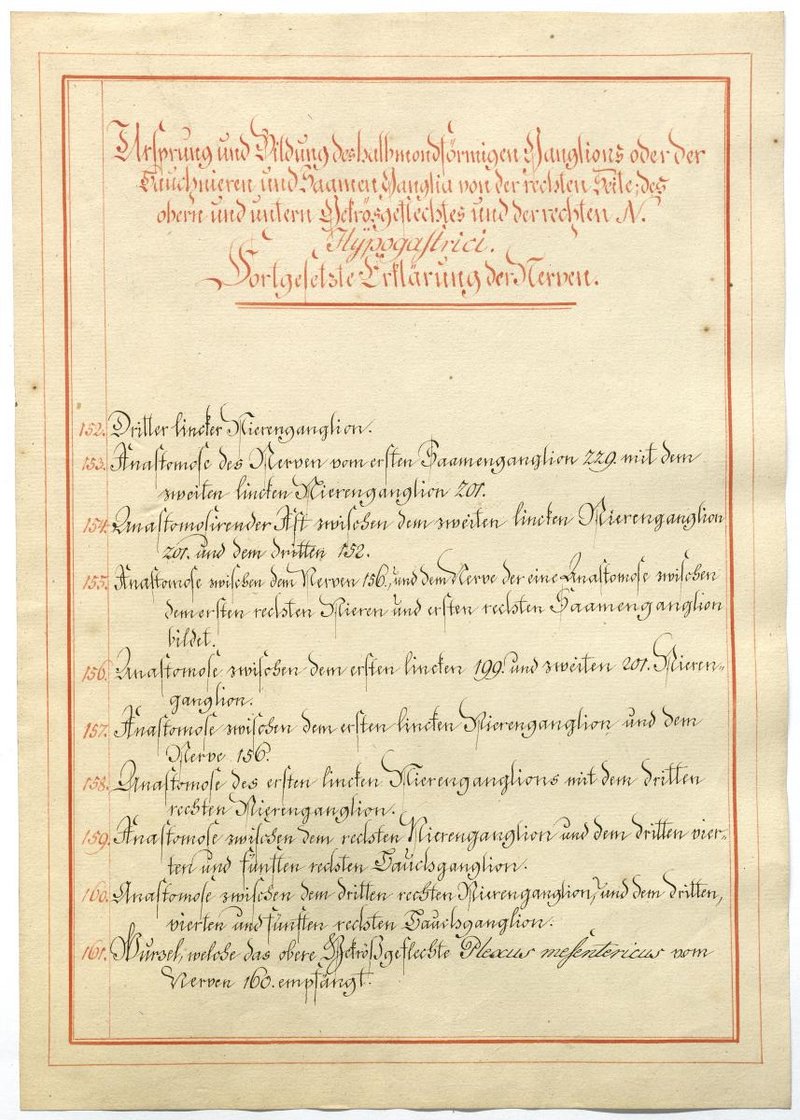 Ursprung und Bildung des halbmondförmigen Ganglions oder der
Bauch, nieren und Saamen Ganglia von der rechten Seite; des
obern und untern Gekrösgeflechtes und der rechten N.
Hypogastrici.
Fortgesetzte Erklärung der Nerven.
152. Dritter lincker Nierenganglion.
153. Anastomose des Nerven vom ersten Saamenganglion 229. mit dem
zweiten lincken Nierenganglion 201.
154. Anastomosirender Ast zwischen dem zweiten lincken Nierenganglion
201. und dem dritten 152.
155. Anastomose zwischen dem Nerven 156., und dem Nerve der eine Anastomose zwischen
dem ersten rechten Nieren und ersten rechten Saamenganglion
bildet.
156. Anastomose zwischen dem ersten lincken 199. und zweiten 201. Nieren-
ganglion.
157. Anastomose zwischen dem ersten lincken Nierenganglion und dem
Nerve 156.
158. Anastomose des ersten lincken Nierenganglions mit dem dritten
rechten Nierenganglion.
159. Anastomose zwischen dem rechten Nierenganglion und dem dritten vier-
ten und fünften rechten Bauchganglion.
160. Anastomose zwischen dem dritten rechten Nierenganglion, und dem dritten,
vierten und fünften rechten Bauchganglion.
161. Wurzel, welche das obere Gekrößgeflechte Plexus mesentericus vom
Nerven 160. empfängt.